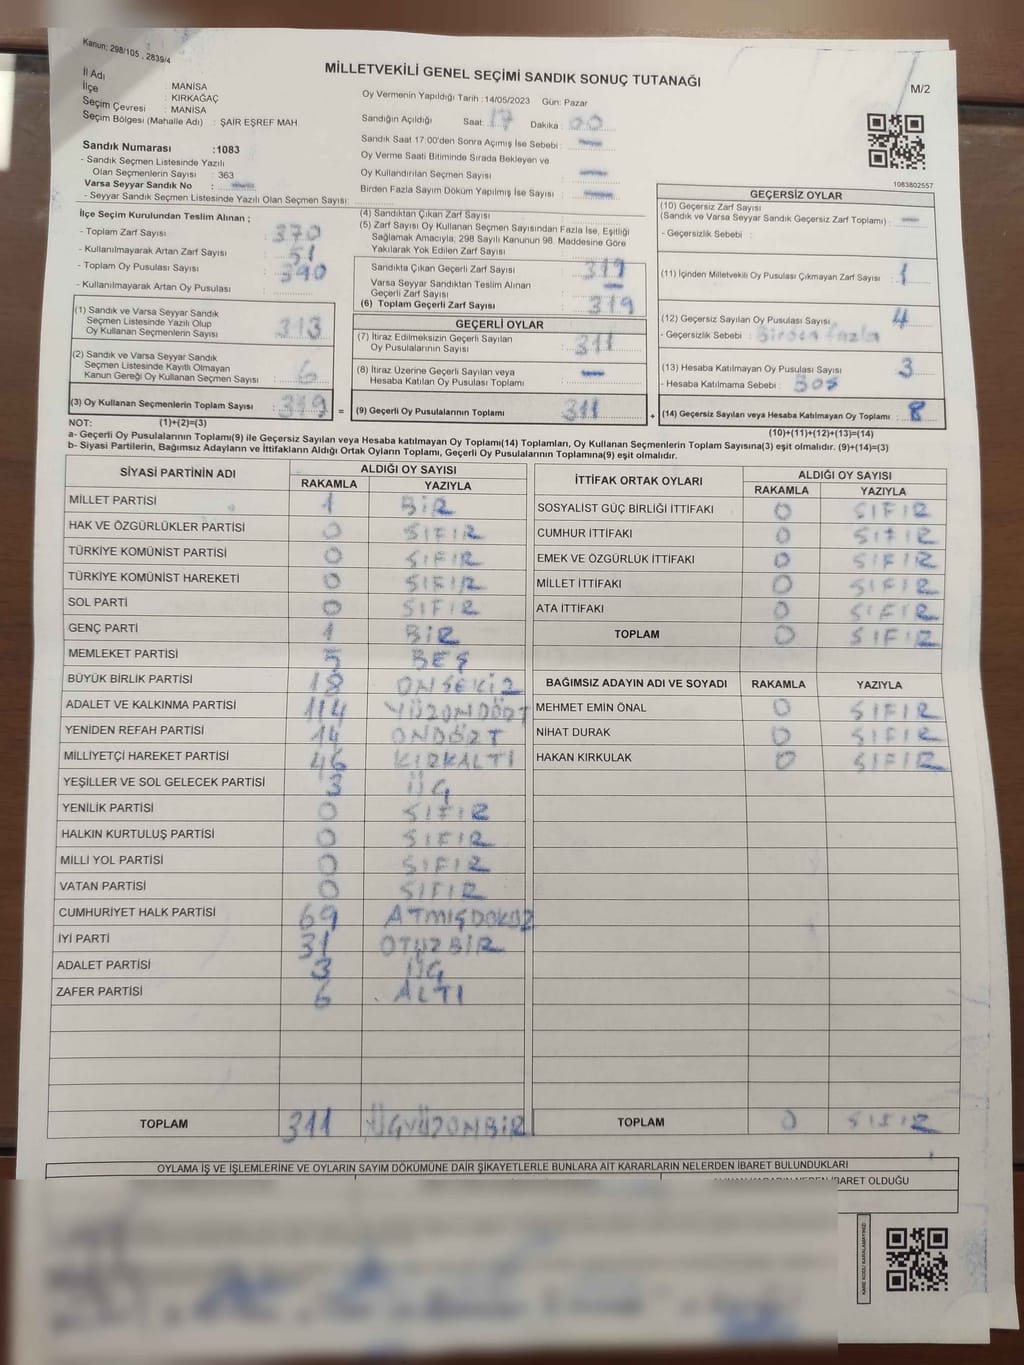 Kanun; 298/105 , 2839/4
MİLLETVEKİLİ GENEL SEÇİMİ SANDIK SONUÇ TUTANAĞI
M/2
İl Adı : MANİSA
İlçe : KIRKAĞAÇ
Seçim Çevresi : MANİSA
Seçim Bölgesi (Mahalle Adı) : ŞAİR EŞREF MAH.
Sandık Numarası :1083
- Sandık Seçmen Listesinde Yazılı
Olan Seçmenlerin Sayısı : 363
Varsa Seyyar Sandık No : —
- Seyyar Sandık Seçmen Listesinde Yazılı Olan Seçmen Sayısı:
Oy Vermenin Yapıldığı Tarih : 14/05/2023 Gün: Pazar
Sandığın Açıldığı Saat: 17 Dakika : 00
Sandık Saat 17:00'den Sonra Açımış İse Sebebi : —
Oy Verme Saati Bitiminde Sırada Bekleyen ve
Oy Kullandırılan Seçmen Sayısı : —
Birden Fazla Sayım Döküm Yapılmış İse Sayısı : —
1083802557
İlçe Seçim Kurulundan Teslim Alınan ;
- Toplam Zarf Sayısı : 370
- Kullanılmayarak Artan Zarf Sayısı : 51
- Toplam Oy Pusulası Sayısı : 390
- Kullanılmayarak Artan Oy Pusulası :
(1) Sandık ve Varsa Seyyar Sandık
Seçmen Listesinde Yazılı Olup
Oy Kullanan Seçmenlerin Sayısı : 313
(2) Sandık ve Varsa Seyyar Sandık
Seçmen Listesinde Kayıtlı Olmayan
Kanun Gereği Oy Kullanan Seçmen Sayısı : 6
(3) Oy Kullanan Seçmenlerin Toplam Sayısı : 319 =
(4) Sandıktan Çıkan Zarf Sayısı :
(5) Zarf Sayısı Oy Kullanan Seçmen Sayısından Fazla İse, Eşitliği
Sağlamak Amacıyla, 298 Sayılı Kanunun 98. Maddesine Göre
Yakılarak Yok Edilen Zarf Sayısı :
Sandıkta Çıkan Geçerli Zarf Sayısı : 319
Varsa Seyyar Sandıktan Teslim Alınan
Geçerli Zarf Sayısı : —
(6) Toplam Geçerli Zarf Sayısı : 319
GEÇERLİ OYLAR
(7) İtiraz Edilmeksizin Geçerli Sayılan
Oy Pusulalarının Sayısı : 311
(8) İtiraz Üzerine Geçerli Sayılan veya
Hesaba Katılan Oy Pusulası Toplamı : —
(9) Geçerli Oy Pusulalarının Toplamı : 311 +
GEÇERSİZ OYLAR
(10) Geçersiz Zarf Sayısı
(Sandık ve Varsa Seyyar Sandık Geçersiz Zarf Toplamı) : —
- Geçersizlik Sebebi :
(11) İçinden Milletvekili Oy Pusulası Çıkmayan Zarf Sayısı : 1
(12) Geçersiz Sayılan Oy Pusulası Sayısı : 4
- Geçersizlik Sebebi : Birden fazla
(13) Hesaba Katılmayan Oy Pusulası Sayısı : 3
- Hesaba Katılmama Sebebi : Boş
(14) Geçersiz Sayılan veya Hesaba Katılmayan Oy Toplamı : 8
NOT: (1)+(2)=(3) (10)+(11)+(12)+(13)=(14)
a- Geçerli Oy Pusulalarının Toplamı(9) ile Geçersiz Sayılan veya Hesaba katılmayan Oy Toplamı(14) Toplamları, Oy Kullanan Seçmenlerin Toplam Sayısına(3) eşit olmalıdır. (9)+(14)=(3)
b- Siyasi Partilerin, Bağımsız Adayların ve İttifakların Aldığı Ortak Oyların Toplamı, Geçerli Oy Pusulalarının Toplamına(9) eşit olmalıdır.
SİYASİ PARTİNİN ADI ALDIĞI OY SAYISI
RAKAMLA YAZIYLA
MİLLET PARTİSİ 1 BİR
HAK VE ÖZGÜRLÜKLER PARTİSİ 0 SIFIR
TÜRKİYE KOMÜNİST PARTİSİ 0 SIFIR
TÜRKİYE KOMÜNİST HAREKETİ 0 SIFIR
SOL PARTİ 0 SIFIR
GENÇ PARTİ 1 BİR
MEMLEKET PARTİSİ 5 BEŞ
BÜYÜK BİRLİK PARTİSİ 18 ONSEKİZ
ADALET VE KALKINMA PARTİSİ 114 YÜZONDÖRT
YENİDEN REFAH PARTİSİ 14 ONDÖRT
MİLLİYETÇİ HAREKET PARTİSİ 46 KIRKALTI
YEŞİLLER VE SOL GELECEK PARTİSİ 3 ÜÇ
YENİLİK PARTİSİ 0 SIFIR
HALKIN KURTULUŞ PARTİSİ 0 SIFIR
MİLLİ YOL PARTİSİ 0 SIFIR
VATAN PARTİSİ 0 SIFIR
CUMHURİYET HALK PARTİSİ 69 ATMIŞDOKUZ
İYİ PARTİ 31 OTUZBİR
ADALET PARTİSİ 3 ÜÇ
ZAFER PARTİSİ 6 ALTI
TOPLAM 311 ÜÇYÜZONBİR
İTTİFAK ORTAK OYLARI ALDIĞI OY SAYISI
RAKAMLA YAZIYLA
SOSYALİST GÜÇ BİRLİĞİ İTTİFAKI 0 SIFIR
CUMHUR İTTİFAKI 0 SIFIR
EMEK VE ÖZGÜRLÜK İTTİFAKI 0 SIFIR
MİLLET İTTİFAKI 0 SIFIR
ATA İTTİFAKI 0 SIFIR
TOPLAM 0 SIFIR
BAĞIMSIZ ADAYIN ADI VE SOYADI RAKAMLA YAZIYLA
MEHMET EMİN ÖNAL 0 SIFIR
NİHAT DURAK 0 SIFIR
HAKAN KIRKULAK 0 SIFIR
TOPLAM 0 SIFIR
OYLAMA İŞ VE İŞLEMLERİNE VE OYLARIN SAYIM DÖKÜMÜNE DAİR ŞİKAYETLERLE BUNLARA AİT KARARLARIN NELERDEN İBARET BULUNDUKLARI
İBARET OLDUĞU
KARE KODU KARALAMAYINIZ!